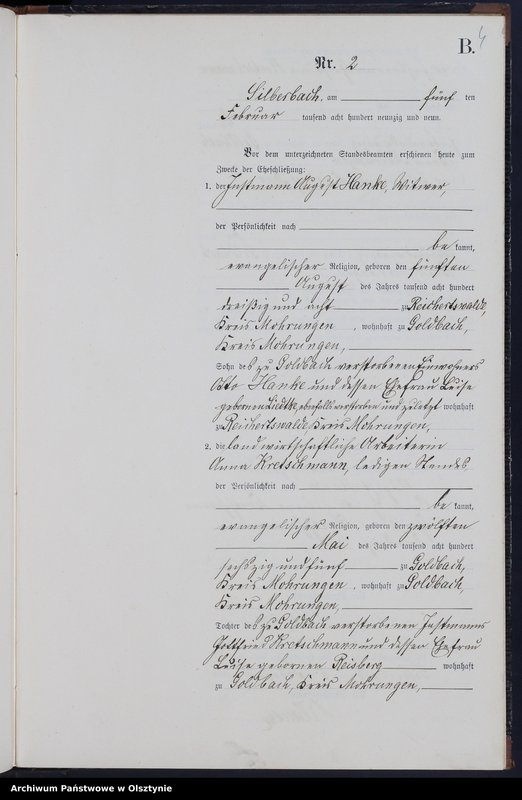 B. 4
Nr. 2
Silberbach, am fünf ten
Februar tausend acht hundert neunzig und neun.
Vor dem unterzeichneten Standesbeamten erschienen heute zum
Zwecke der Eheschließung:
1. der Instmann August Hanke, Witwer,
der Persönlichkeit nach
be kannt,
evangelischer Religion, geboren den fünften
August des Jahres tausend acht hundert
dreißig und acht zu Reichertswalde,
Kreis Mohrungen, wohnhaft zu Goldbach,
Kreis Mohrungen,
Sohn des zu Goldbach verstorbenen Einwohners
Otto Hanke und dessen Ehefrau Luise
gebornen Liedtke, ebenfalls verstorben und zuletzt wohnhaft
zu Reichertswalde Kreis Mohrungen,
2. die landwirtschaftliche Arbeiterin
Anna Kretschmann, ledigen Standes
der Persönlichkeit nach
be kannt,
evangelischer Religion, geboren den zwölften
Mai des Jahres tausend acht hundert
sechszig und fünf zu Goldbach,
Kreis Mohrungen, wohnhaft zu Goldbach,
Kreis Mohrungen,
Tochter des zu Goldbach verstorbenen Instmanns
Gottfried Kretschmann und dessen Ehefrau
Luise gebornen Reisberg wohnhaft
zu Goldbach, Kreis Mohrungen,
Archiwum Państwowe w Olsztynie